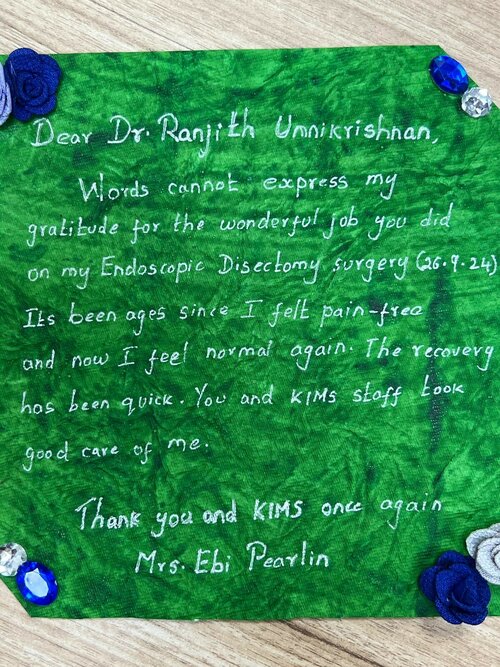 Dear Dr. Ranjith Unnikrishnan,
Words cannot express my
gratitude for the wonderful job you did
on my Endoscopic Disectomy surgery (26.9.24)
Its been ages since I felt pain-free
and now I feel normal again. The recovery
has been quick. You and KIMS staff took
good care of me.
Thank you and KIMS once again
Mrs. Ebi Pearlin